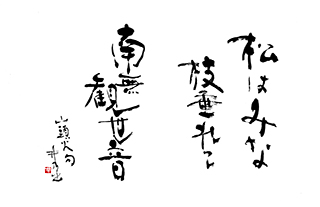 松はみな
枝垂れて
南無観世音
山頭火句